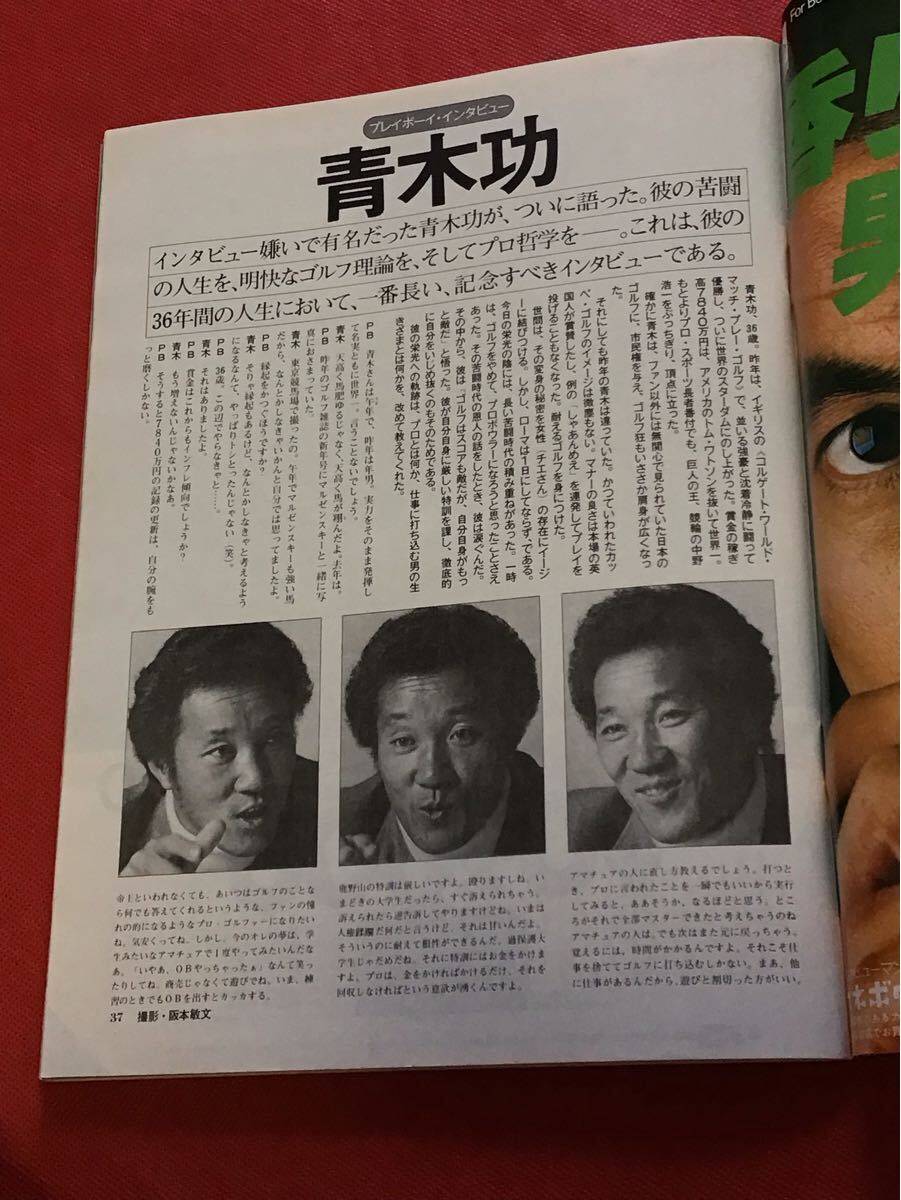 プレイボーイ・インタビュー
青木功
インタビュー嫌いで有名だった青木功が、ついに語った。彼の苦闘
の人生を、明快なゴルフ理論を、そしてプロ哲学を——。これは、彼の
36年間の人生において、一番長い、記念すべきインタビューである。
青木功、36歳。昨年は、イギリスの《コルゲート・ワールド・
マッチ・プレー・ゴルフ》で、並いる強豪と沈着冷静に闘って
優勝し、ついに世界のスターダムにのし上がった。賞金の稼ぎ
高7840万円は、アメリカのトム・ワトソンを抜いて世界一。
もとよりプロ・スポーツ長者番付でも、巨人の王、競輪の中野
浩一をぶっちぎり、頂点に立った。
確かに青木は、ファン以外には無関心で見られていた日本の
ゴルフに、市民権を与え、ゴルフ狂もいささか肩身が広くなっ
た。
それにしても昨年の青木は違っていた。かつていわれたカッ
ペ・ゴルフのイメージは微塵もない。マナーの良さは本場の英
国人が賞賛したし、例の「しゃあんめえ」を連発してプレイを
投げることもなくなった。耐えるゴルフを身につけた。
世間は、その変身の秘密を女性（チエさん）の存在にイージ
ーに結びつける。しかし、ローマは1日にしてならず、である。
今日の栄光の陰には、長い苦闘時代の積み重ねがあった。一時
は、ゴルフをやめて、プロボウラーになろうと思ったことさえ
あった。その苦闘時代の恩人の話をしたとき、彼は涙ぐんだ。
その中から、彼は「ゴルフはスコアも敵だが、自分自身がもっ
と敵だ」と悟った。彼が自分自身に厳しい特訓を課し、徹底的
に自分をいじめ抜くのもそのためである。
彼の栄光への軌跡は、プロとは何か、仕事に打ち込む男の生
きざまとは何かを、改めて教えてくれた。
PB 青木さんは午年で、昨年は年男。実力をそのまま発揮し
て名実ともに世界一。言うことないでしょう。
青木 天高く馬肥ゆるじゃなく、天高く馬が翔んだよ。去年は。
PB 昨年のゴルフ雑誌の新年号にマルゼンスキーと一緒に写
真におさまっていた。
青木 東京競馬場で撮ったの。午年でマルゼンスキーも強い馬
だから、なんとかしなきゃいかんと自分では思ってましたよ。
PB 縁起をかつぐほうですか？
青木 そりゃ縁起もあるけど、なんとかしなきゃと考えるよう
になるなんて、やっぱりトシとったんじゃない（笑）。
PB 36歳。この辺でやらなきゃと……。
青木 それはありましたよ。
PB 賞金はこれからもインフレ傾向でしょうか？
青木 もう増えないんじゃないかなあ。
PB そうすると7840万円の記録の更新は、自分の腕をも
っと磨くしかない。
帝王といわれなくても、あいつはゴルフのことな
ら何でも答えてくれるというような、ファンの憧
れの的になるようなプロ・ゴルファーになりたい
ね。気安くってね。しかし、今のオレの夢は、学
生みたいなアマチュアで1度やってみたいんだな
あ。「いやあ、OBやっちゃったぁ」なんて笑っ
たりしてね。商売じゃなくて遊びでね。いま、練
習のときでもOBを出すとカッカする。
鹿野山の特訓は厳しいですよ。撲りますしね。い
まどきの大学生だったら、すぐ訴えられちゃう。
訴えられたら逆告訴してやりますけどね。いまは
人権蹂躙だ何だと言うけど、それは甘いんだよ。
そういうのに耐えて根性ができるんだ。過保護大
学生じゃだめだね。それに特訓にはお金をかけま
すよ。プロは、金をかければかけるだけ、それを
回収しなければという意欲が湧くんですよ。
アマチュアの人に直し方教えるでしょう。打つと
き、プロに言われたことを一瞬でもいいから実行
してみると、ああそうか、なるほどと思う。とこ
ろがそれで全部マスターできたと考えちゃうのね
アマチュアの人は。でも次はまた元に戻っちゃう。
覚えるには、時間がかかるんですよ。それこそ仕
事を捨ててゴルフに打ち込むしかない。まあ、他
に仕事があるんだから、遊びと割切った方がいい。
37 撮影・阪本敏文
For
男